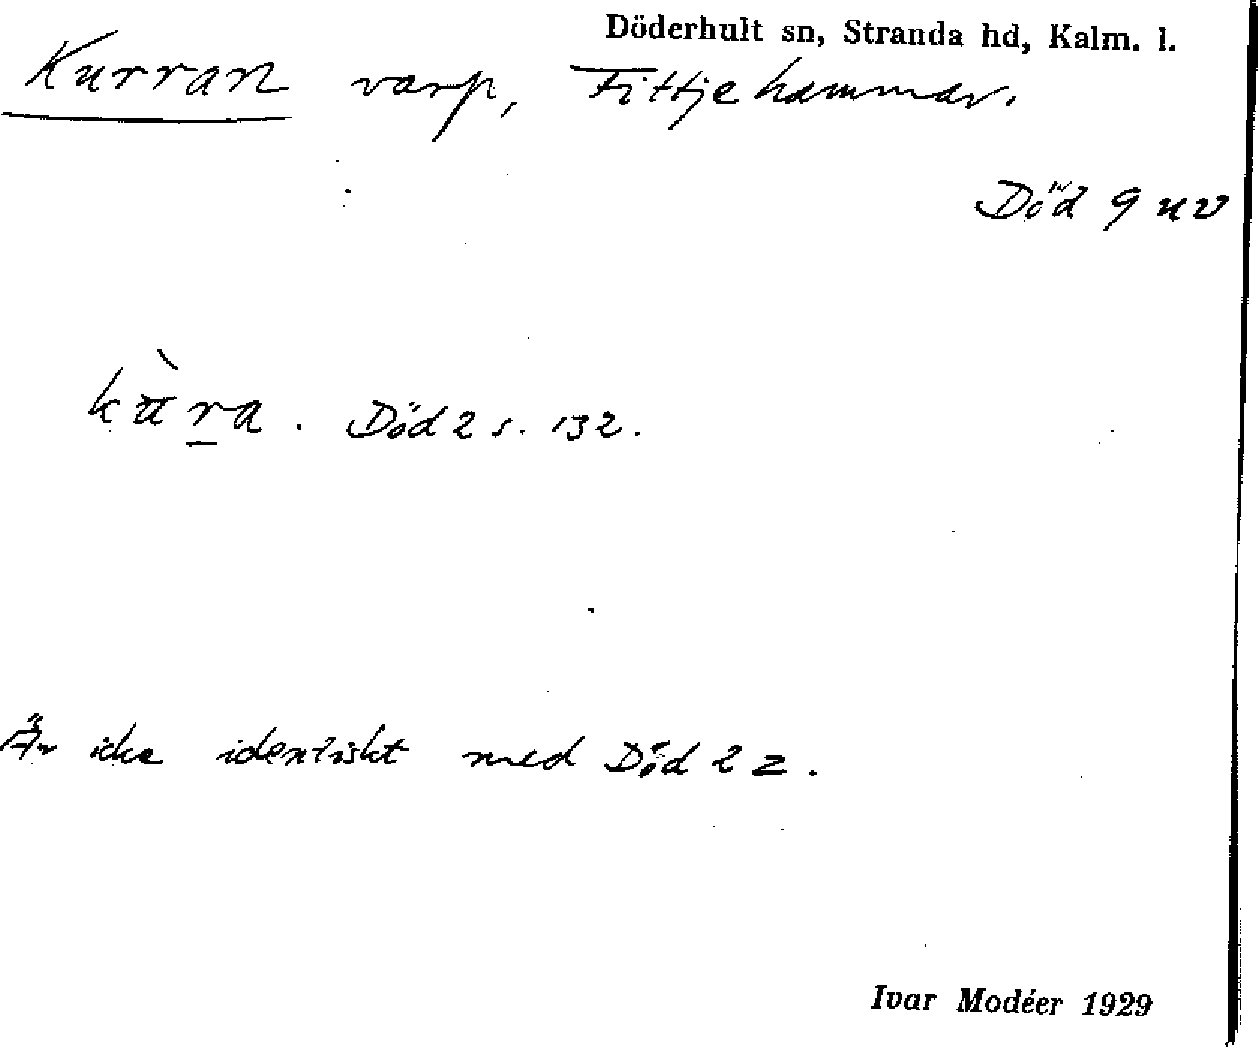 Döderhult sn, Stranda hd, Kalm. l.
Kurran varp, Fittjehammar.
Död 9 uv
kùra. Död 2 s. 132.
Är icke identiskt med Död 2 z.
Ivar Modéer 1929